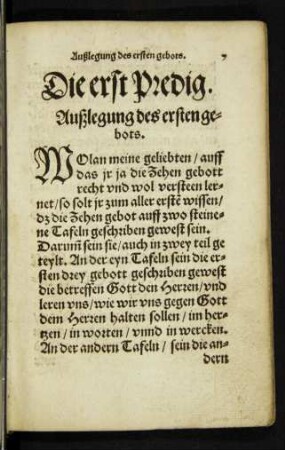 Außlegung des ersten gebots. 7
Die erst Predig.
Außlegung des ersten ge-
bots.
WOlan meine geliebten / auff
das jr ja die Zehen gebott
recht vnd wol versteen ler-
net / so solt jr zum aller erstẽ wissen /
dz die Zehen gebot auff zwo steine-
ne Tafeln geschriben gewest sein.
Darum̃ sein sie / auch in zwey teil ge
teylt. An der eyn Tafeln sein die er-
sten drey gebott geschriben gewest
die betreffen Gott den Herren / vnd
leren vns / wie wir vns gegen Gott
dem Herren halten sollen / im her-
tzen / in worten / vnnd in wercken.
An der andern Tafeln / sein die an-
dern